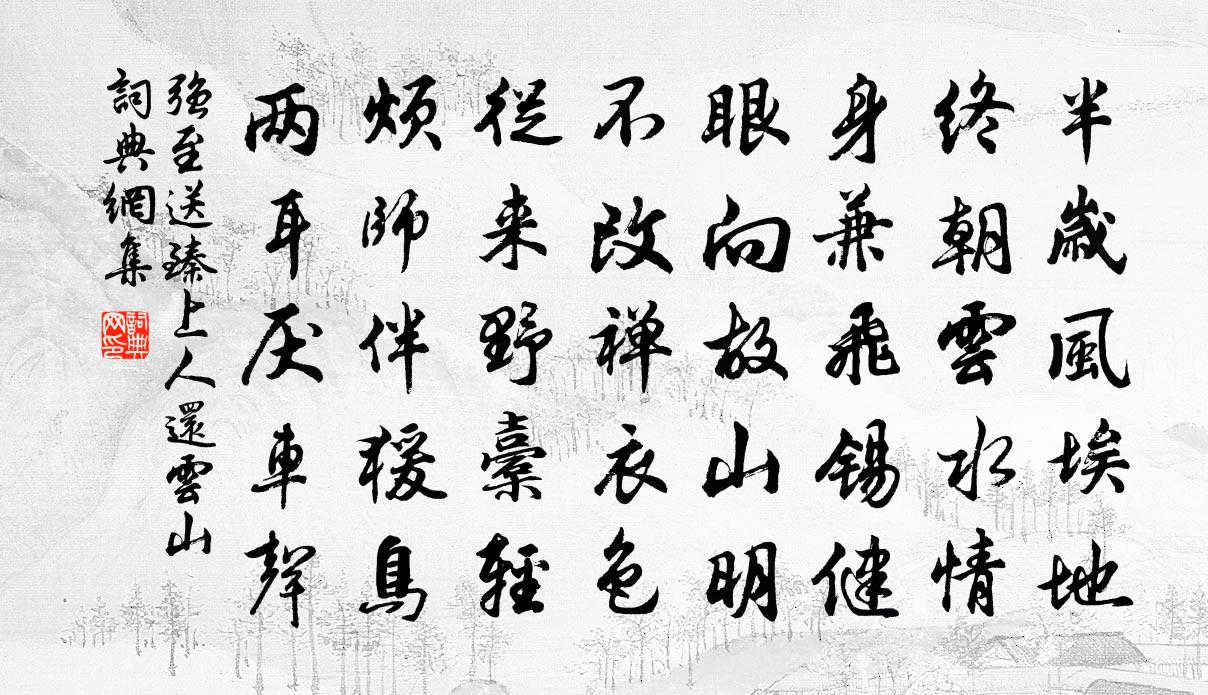 半歲風埃地
終朝雲水情
身兼飛錫健
眼向故山明
不改禅衣色
從来野橐輕
煩師伴猨鳥
两耳厌車聲
強至送臻上人還雲山
詞典網集
詞典网印